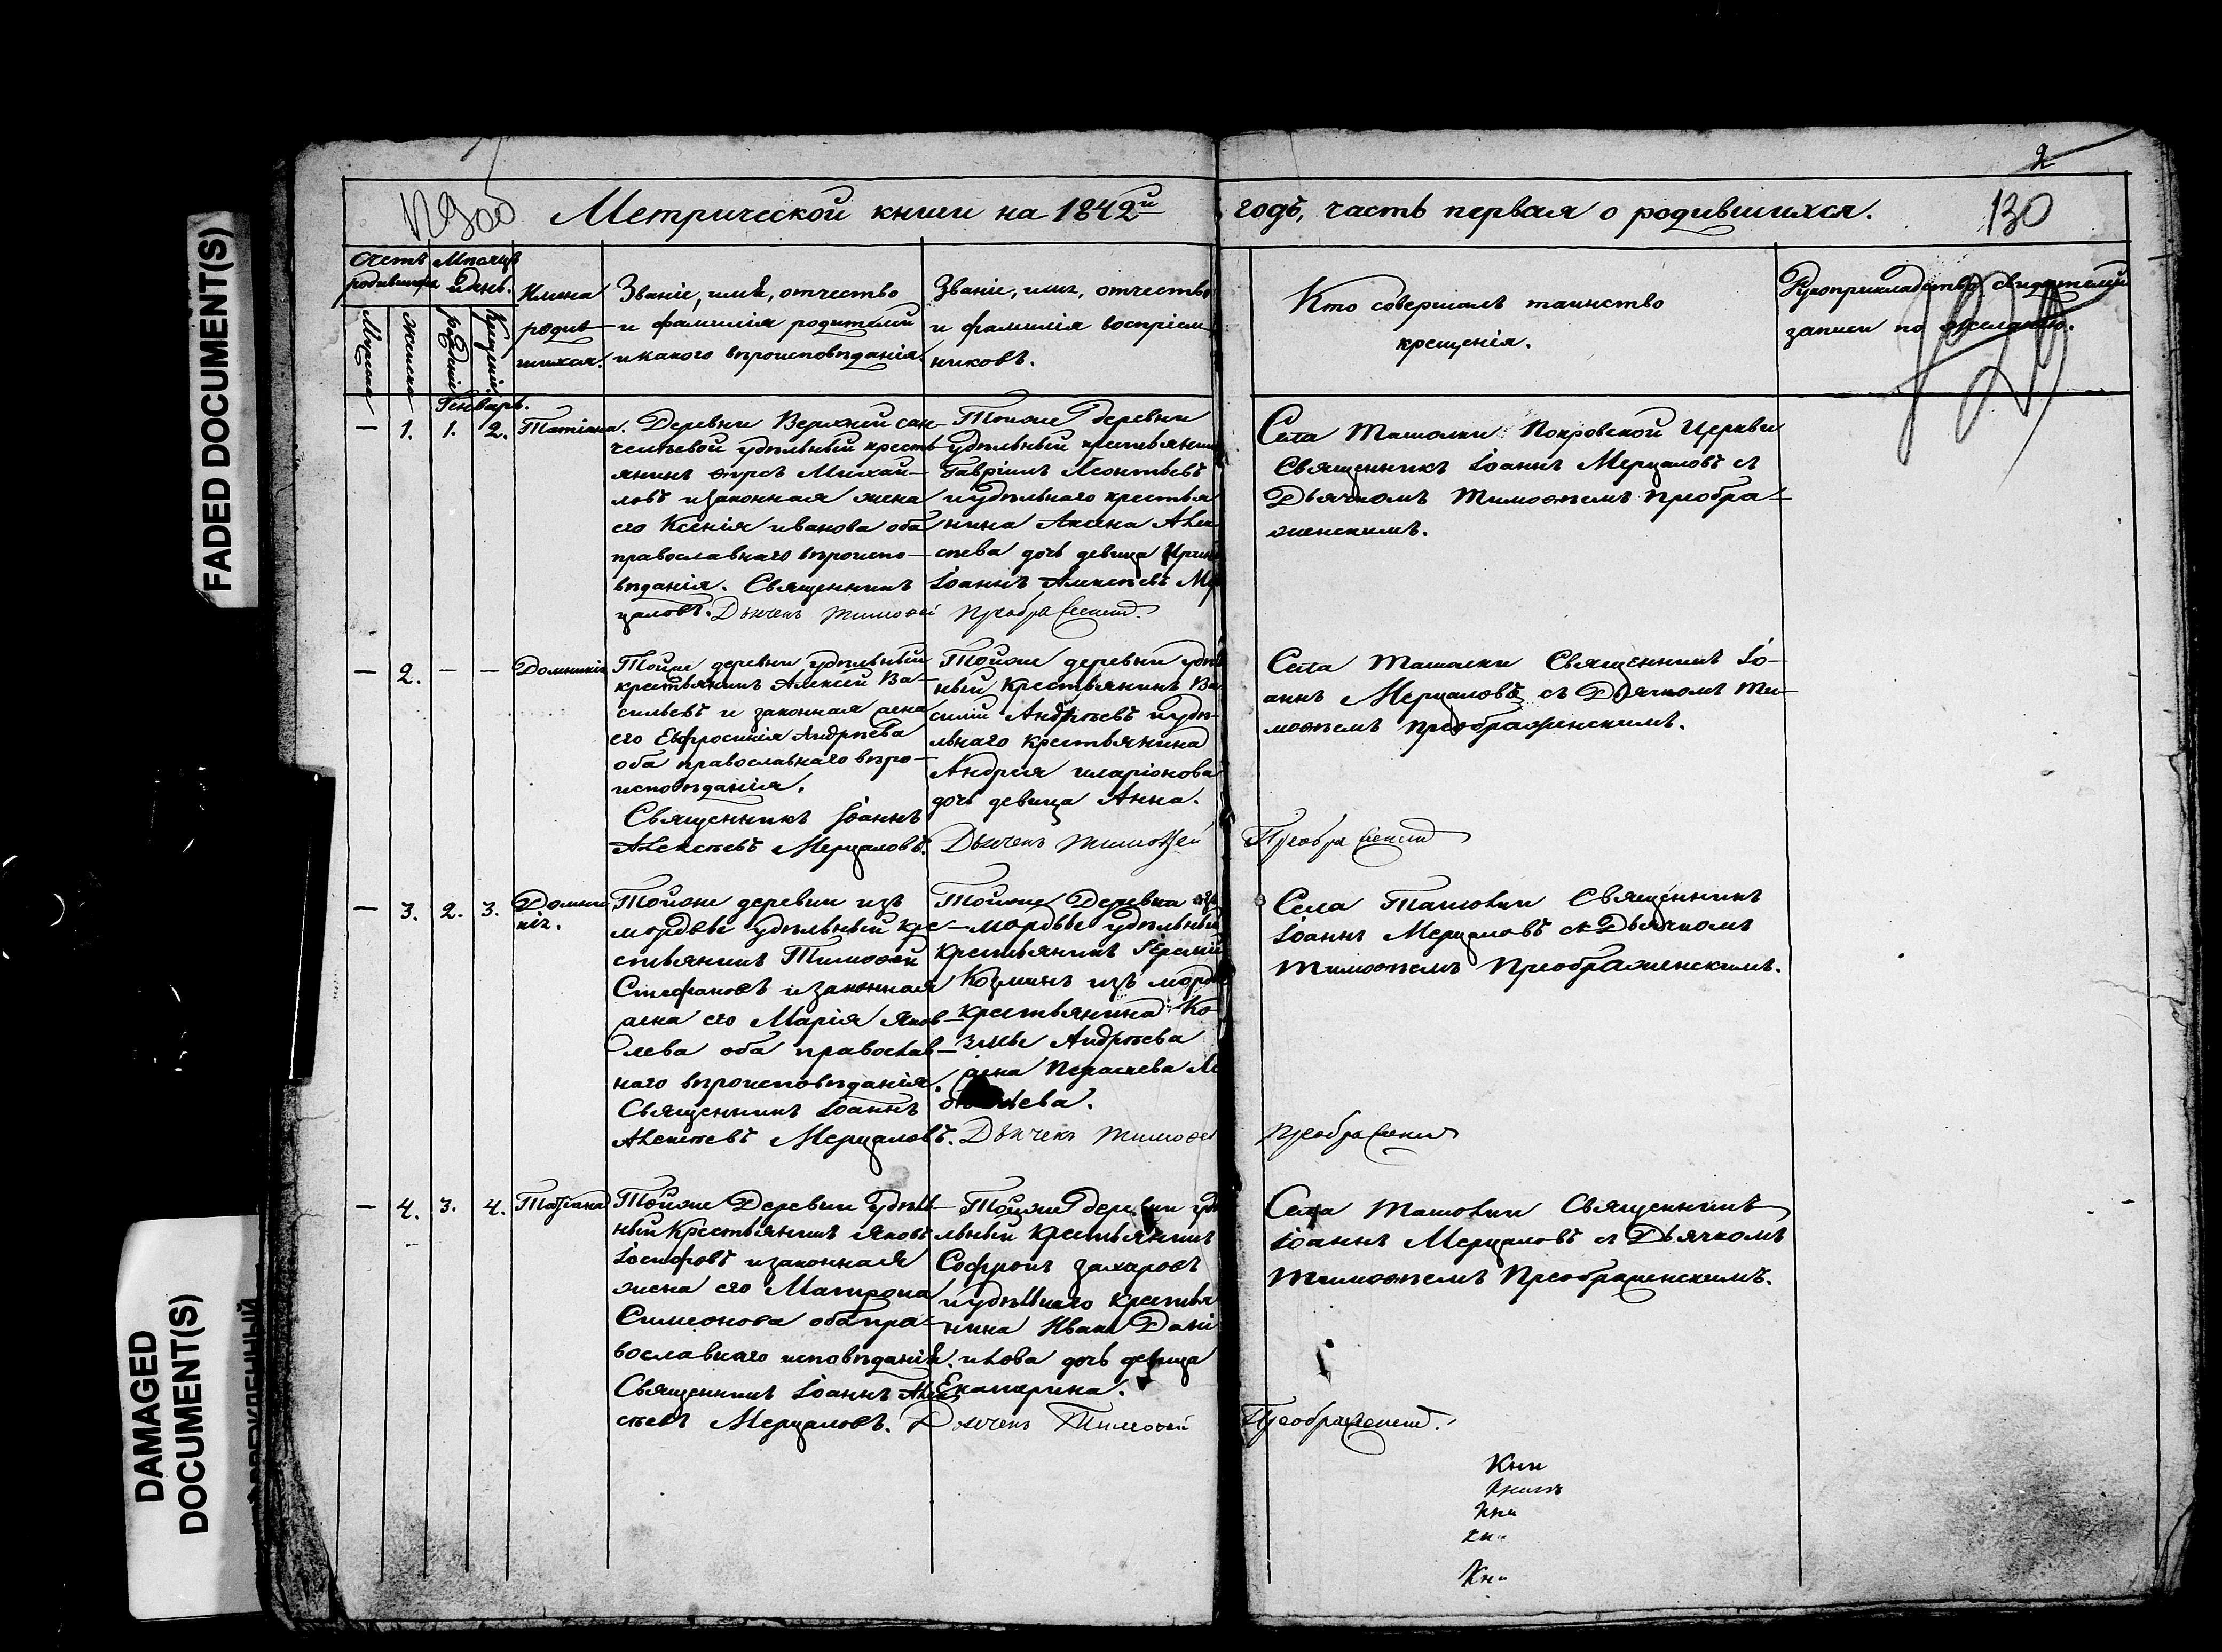 FADED DOCUMENT(S)
DAMAGED
DOCUMENT(S)
2
130
Метрической книги на 1842й годъ, часть первая о родившихся.
Счетъ родившихся
Мѣсяцъ и день.
Мужска
Женска
рожденія
Крещенія
Имена
родив-
шихся.
Званіе, имя, отчество
и фамилія родителей
и какого вѣроисповѣданія
Званіе, имя, отчество
и фамилія воспріем
никовъ.
Кто совершалъ таинство
крещенія.
Рукоприкладство свидетелей
записи по желанію.
Генварь.
— 1. 1. 2. Татіана.
Деревни Верхней сан-
челѣевой удѣльный кресть
янинъ Михай-
ловъ и законная жена
его Ксенія иванова оба
православнаго вѣроиспо-
вѣданія. Священникъ
Тойже деревни
удѣльный крестьянинъ
Гавріилъ Леонтьевъ
и удѣльнаго крестья
нина Аксена Алек
сѣева дочь девица Ирин
Іоаннъ Алексѣевъ Мер
цаловъ. Дьячекъ тимофей Преображенскій
Села Ташолки Покровской Церкви
Священникъ Іоаннъ Мерцаловъ съ
Дьячкомъ Тимоѳеемъ Преобра-
женскимъ.
— 2. — — Домникія
Тойже деревни удѣльный
крестьянинъ Алексей Ва-
сильевъ и законная жена
его Евфросинія Андрѣева
оба православнаго вѣро-
исповѣданія.
Священникъ Іоаннъ
Алексѣевъ Мерцаловъ.
Тойже деревни удѣл
ный Крестьянинъ Ва
силій Андрѣевъ и удѣ-
льнаго крестьянина
Андрея иларіонова
дочь девица Анна.
Дьячекъ тимофей Преображенскій
Села Ташолки Священникъ Іо-
аннъ Мерцаловъ съ Дьячкомъ Ти-
моѳеемъ преображенскимъ.
— 3. 2. 3. Домни
кія.
Тойже деревни изъ
мордвы удѣльный кре-
стьянинъ Тимоѳей
Стефановъ и законная
жена его Марія Яков-
лева оба православ-
наго вѣроисповѣданія.
Священникъ Іоаннъ
Алексѣевъ Мерцаловъ.
Тойже Деревни изъ
мордвы удѣльный
крестьянинъ
Козминъ изъ морд
крестьянина Ко-
змы Андрѣева
жена
Дьячекъ тимофей Преображенскій
Села Ташолки Священникъ
Іоаннъ Мерцаловъ съ Дьячкомъ
тимоѳеемъ Преображенскимъ.
— 4. 3. 4. Татіана
Тойже Деревни Удѣль-
ный Крестьянинъ Яковъ
Іосифовъ и законная
жена его Матрона
Симеонова оба пра-
вославнаго исповѣданія.
Священникъ Іоаннъ Алек
сѣевъ Мерцаловъ.
Тойже деревни удѣ
льный крестьянинъ
Софронъ Захаровъ
и удѣльнаго крестья
нина Ивана Дані
илова дочь девица
Екатерина.
Дьячекъ Тимофей Преображенскій.
Села Ташолки Священникъ
Іоаннъ Мерцаловъ съ Дьячкомъ
тимоѳеемъ Преображенскимъ.
Кни
Кни
Кни